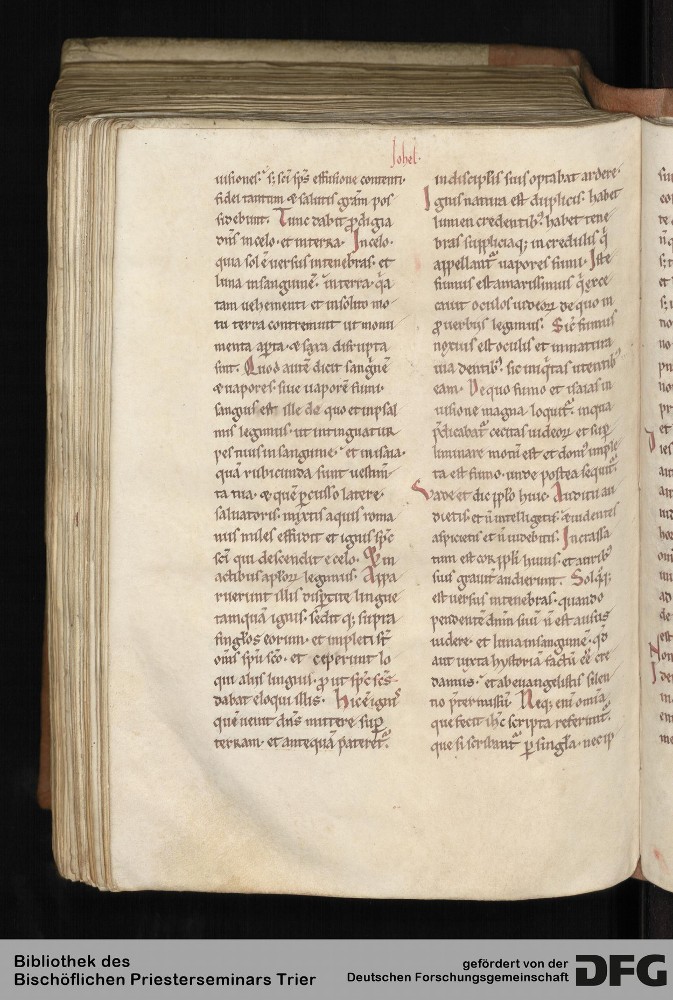 Iohel.
uisiones. s; sci sps effusione contenti.
fidei tantum & salutis gram pos
sidebunt. Tunc dabit pdigia
dns in celo. et in terra. In celo.
quia sol e uersus in tenebras. et
luna in sanguine. in terra. qa
tam uehementi et insolito mo
tu terra contremuit ut monu
menta apta. & saxa disrupta
sint. Quod aute dicit sangine
& uapores. siue uapore fumi.
sanguis est ille de quo et in psal
mis legimus. ut intinguatur
pes tuus in sanguine. et in isaia.
qua rubicunda sunt uestim
ta tua. & que pcusso latere.
saluatoris. mixtis aquis roma
nus miles effudit et ignis spc
sci qui descendit e celo. Qm in
actibus aplor legimus. Appa
ruerunt illis disptite lingue
tamqua ignis. sedit q; supra
singlos eorum. et impleti st
oms spu sco. et ceperunt lo
qui aliis linguis. p ut spc scs
dabat eloqui illis. Hic e ignis
que uenit dns mittere sup
terram. et antequa pateret.
in disciplis suis optabat ardere.
Ignis natura est duplicis. habet
lumen credentib; habet tene
bras suppliciaq; incredulis q
appellant uapores fumi. Iste
fumus est amarissimus q exce
cauit oculos iudeor de quo in
puerbiis legimus. Sic fumus
noxius est oculis et inmatura
uua dentib; sic iniqtas utentib;
eam. De quo fumo et isaias in
uisione magna loquit. in qua
pdicabat cecitas iudeor et sup
liminare motu est et dom imple
ta est fumo. unde postea sequit.
Vade et dic pplo huic. Auditu au
dietis. et n intelligetis. & uidentes
aspicietis et n uidebitis. Incrassa
tum est cor ppli huius. et aurib;
suis grauit audierunt. Sol q;
est uersus in tenebras. quando
pendente dnm suu n est ausus
uidere. et luna in sanguine. qd
aut iuxta hystoria factu ee cre
damus. et ab euangelistis silen
tio ptermissu. Neq; eni omia
que fecit ihc scripta referunt.
que si scribant p singla. nec ip
Bibliothek des
Bischöflichen Priesterseminars Trier
gefördert von der
Deutschen Forschungsgemeinschaft
DFG